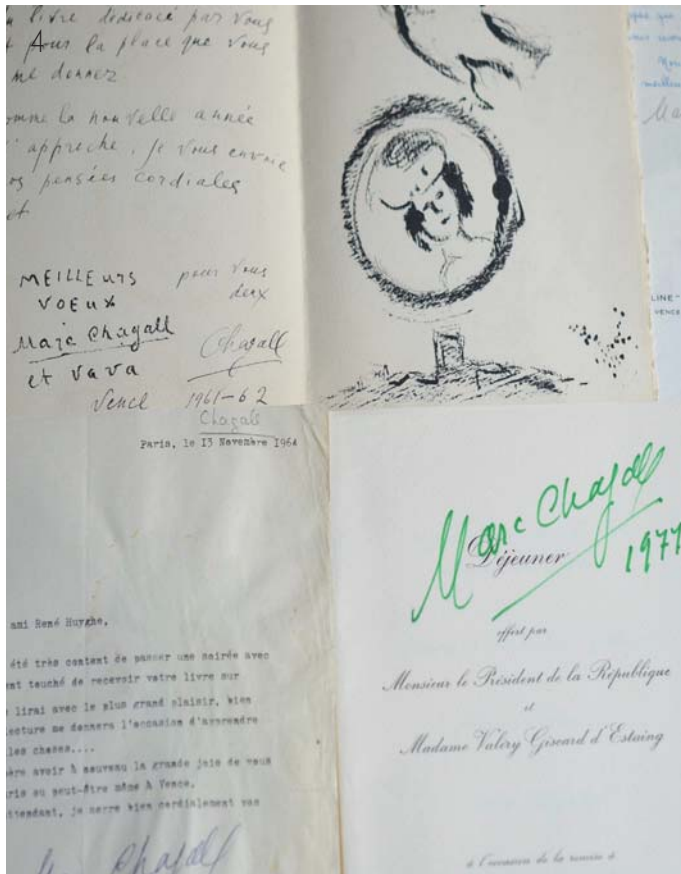 livre dédicacé par vous
et pour la place que vous
me donnez
comme la nouvelle année
approche, je vous envoie
pensées cordiales
et
MEILLEURS
VOEUX
pour vous
deux
Marc Chagall
et Vava
Chagall
Vence 1961-62
Chagall
que
meilleur
LINE-
VENCE
Paris, le 13 Novembre 1964
ami René Huyghe,
été très content de passer une soirée avec
touché de recevoir votre livre sur
lirai avec le plus grand plaisir, bien
lecture me donnera l'occasion d'apprendre
les choses....
avoir à nouveau la grande joie de vous
ou peut-être même à Vence.
attendant, je serre bien cordialement vos
Chagall
Marc Chagall
1977
Déjeuner
offert par
Monsieur le Président de la République
et
Madame Valéry Giscard d'Estaing
à l'occasion de la remise à